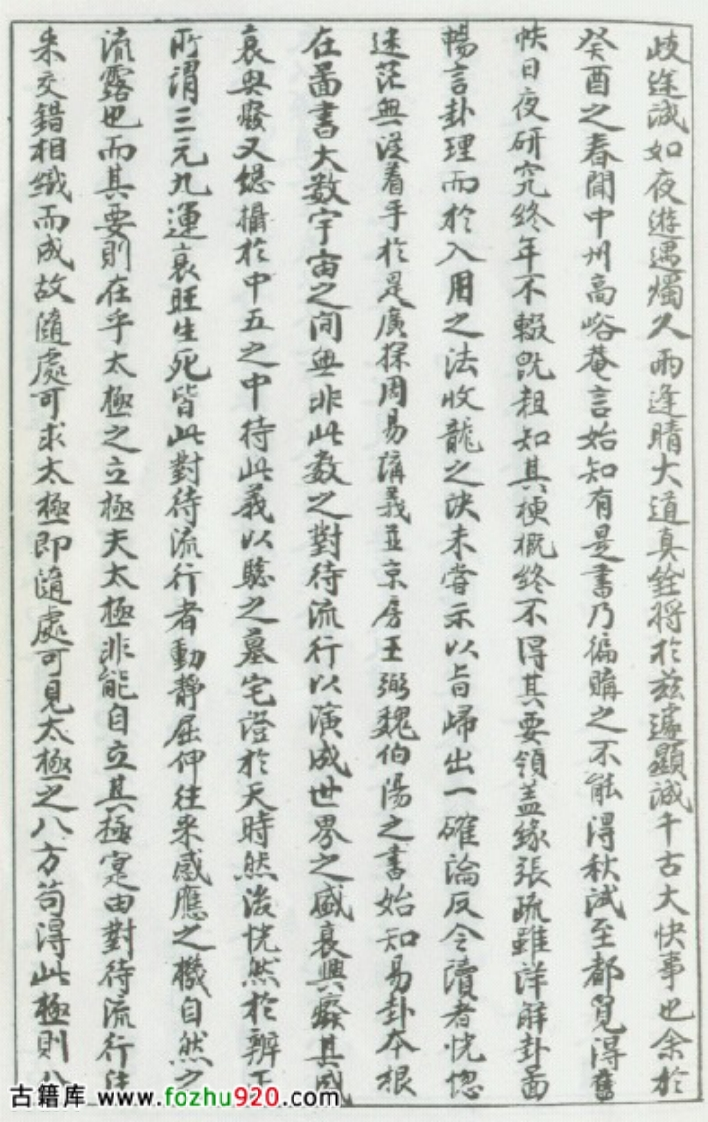 歧途誠如夜遊遇燭久雨逢晴大道真銓將於兹遽顯誠千古大快事也余於
癸酉之春聞中州高峪菴言始知有是書乃徧購之不能得秋試至都覓得舊
帙日夜研究終年不輟既粗知其梗概終不得其要領盖緣張疏雖詳解卦畵
暢言卦理而於入用之法收龍之訣未嘗示以旨歸出一確論反令讀者恍惚
迷茫無從着手於是廣採周易講義並京房王弼魏伯陽之書始知易卦本根
在啚書大数宇宙之间無非此数之對待流行以演成世界之盛衰興癈其盛
衰興癈又緫攝於中五之中持此義以騐之墓宅證於天時然後恍然於辨正
所謂三元九運衰旺生死皆此對待流行者動靜屈伸往來感應之機自然之
流露也而其要則在乎太極之立極夫太極非能自立其極寔由對待流行往
來交錯相織而成故隨處可求太極即隨處可見太極之八方苟得此極則八
古籍库 www.fozhu920.com